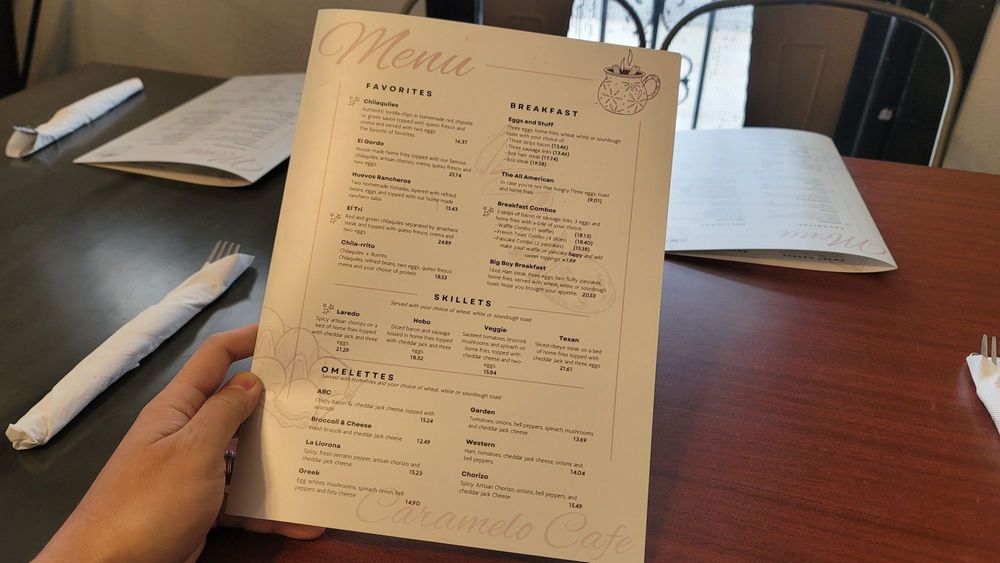 Menu
FAVORITES
Chilaquiles
Authentic tortilla chips in homemade red, chipotle
or green sauce topped with queso fresco and
crema and served with two eggs
The favorite of favorites.
16.37
El Gordo
House made home fries topped with our famous
chilaquiles, artisan chorizo, crema, queso fresco and
two eggs.
25.74
Huevos Rancheros
Two homemade tostadas, layered with refried
beans, eggs and topped with our home made
ranchero salsa
15.43
El Tri
Red and green chilaquiles separated by arrachera
steak and topped with queso fresco, crema and
two eggs
24.89
Chila-rrito
Chilaquiles + Burrito
Chilaquiles, refried beans, two eggs, queso fresco
crema and your choice of protein
18.53
BREAKFAST
Eggs and Stuff
Three eggs, home fries, wheat, white or sourdough
toast with your choice of:
-Three strips bacon (13.46)
-Three sausage links (13.46)
-8oz ham steak (17.74)
-8oz steak (19.58)
The All American
In case you're not that hungry. Three eggs, toast
and home fries
(9.01)
Breakfast Combos
3 strips of bacon or sausage links, 3 eggs and
home fries with a side of your choice:
-Waffle Combo (1 waffle) (18.13)
-French Toast Combo (4 slices) (18.40)
-Pancake Combo (2 pancakes) (15.38)
make your waffle or pancake happy and add
sweet toppings +1.99
Big Boy Breakfast
16oz Ham steak, three eggs, two fluffy pancakes,
home fries, served with wheat, white or sourdough
toast. Hope you brought your appetite. 20.53
SKILLETS
Served with your choice of wheat, white or sourdough toast
Laredo
Spicy artisan chorizo on a
bed of home fries topped
with cheddar jack and three
eggs
21.29
Hobo
Diced bacon and sausage
tossed in home fries topped
with cheddar jack and three
eggs
18.32
Veggie
Sauteed tomatoes, broccoli,
mushrooms and spinach on
home fries topped with
cheddar cheese and two
eggs.
15.84
Texan
Sliced ribeye steak on a bed
of home fries topped with
cheddar jack and three eggs
21.61
OMELETTES
Served with Homefries and your choice of wheat, white or sourdough toast
ABC
Crispy bacon & cheddar jack cheese, topped with
avocado
15.24
Broccoli & Cheese
Fresh broccoli and cheddar jack cheese
12.49
La Llorona
Spicy, fresh serrano pepper, artisan chorizo and
cheddar jack cheese
15.23
Greek
Egg whites, mushrooms, spinach onion, bell
peppers and feta cheese
14.90
Garden
Tomatoes, onions, bell peppers, spinach, mushrooms
and cheddar jack cheese
13.69
Western
Ham, tomatoes, cheddar jack cheese, onions and
bell peppers.
14.04
Chorizo
Spicy Artisan Chorizo, onions, bell peppers, and
cheddar jack Cheese
15.49
Caramelo Cafe
Menu